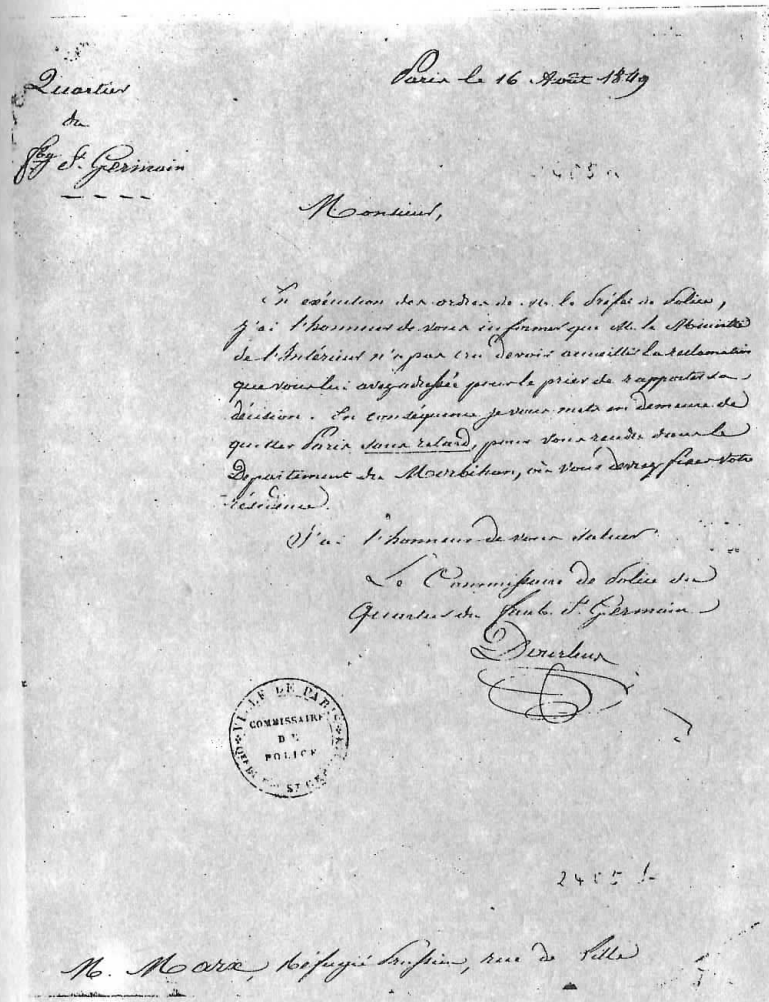 Quartier
du
fbg St. Germain
Paris le 16 Août 1849
Monsieur,
En exécution des ordres de M. le Préfet de Police,
j'ai l'honneur de vous informer que M. le Ministre
de l'Intérieur n'a pas cru devoir accueillir la réclamation
que vous lui avez adressée pour le prier de rapporter sa
décision. En conséquence je vous mets en demeure de
quitter Paris sans retard, pour vous rendre dans le
Département du Morbihan, où vous devrez fixer votre
résidence.
J'ai l'honneur de vous saluer
Le Commissaire de Police du
Quartier du faub. St. Germain
VILLE DE PARIS
COMMISSAIRE
DE
POLICE
M. Marx, réfugié Prussien, rue de Lille